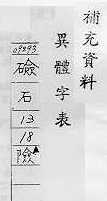 補充資料
異體字表
09893
礆
石
13
18
險